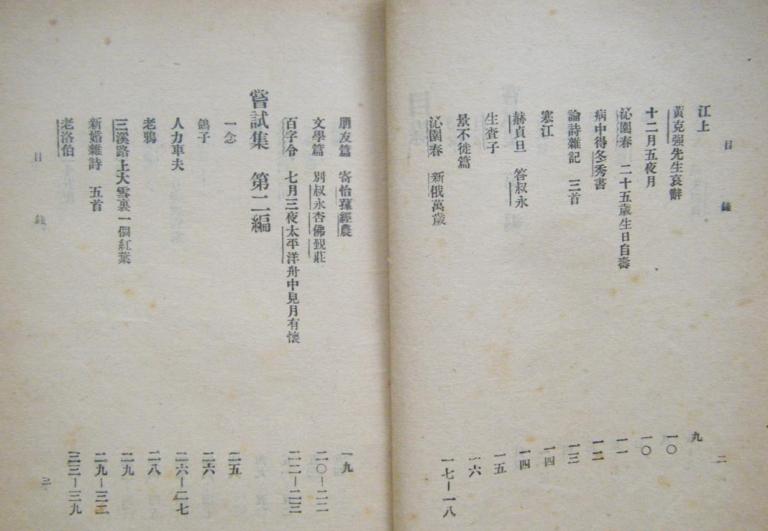 目錄 二
江上 九
黃克强先生哀辭 一〇
十二月五夜月 一〇
沁園春 二十五歲生日自壽 一一
病中得冬秀書 一二
論詩雜記 三首 一三
寒江 一四
赫貞旦 答叔永 一四
生查子 一五
景不徙篇 一六
沁園春 新俄萬歲 一七—一八
朋友篇 寄怡蓀經農 一九
文學篇 別叔永杏佛覲莊 二〇—二一
百字令 七月三夜太平洋舟中見月有懷 二二—二三
嘗試集 第二編
一念 二五
鴿子 二六
人力車夫 二六—二七
老鴉 二八
三溪路上大雪裏一個紅葉 二九
新婚雜詩 五首 二九—三二
老洛伯 三三—三九
目錄 三